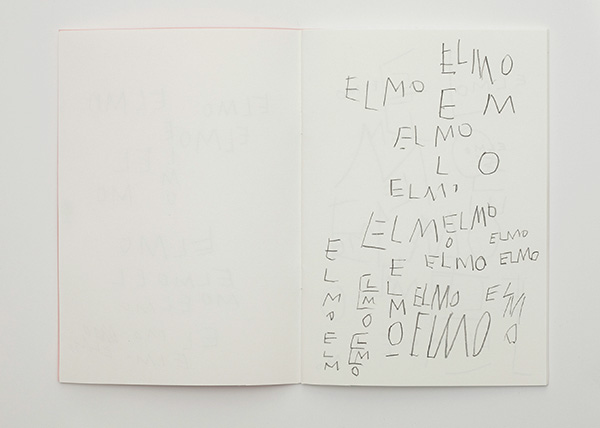 ELMO
ELMO
E M
ELMO
L O
ELMO
ELMO
ELMO
ELMO
ELMO
ELMO
ELMO
ELM
ELMO
ELMO
ELMO
ELMO
ELMO
ELMO